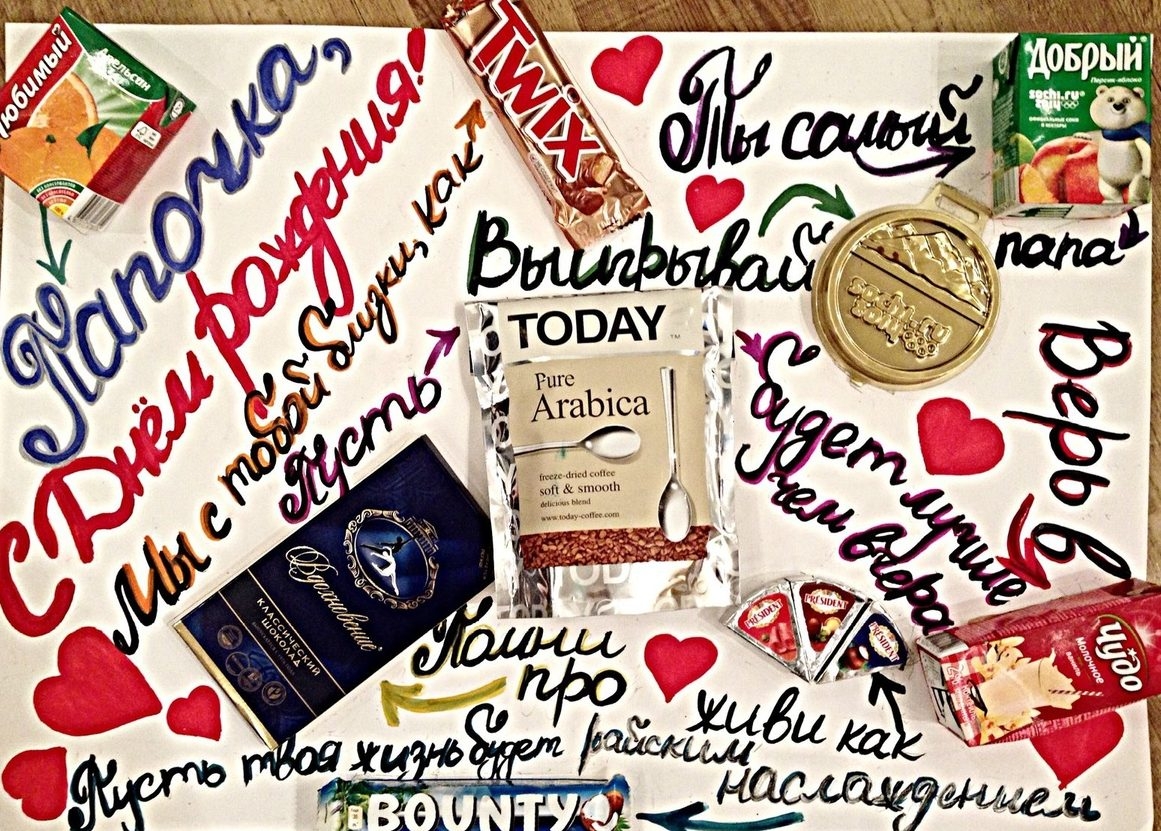 Любимый
Апельсин
Папочка,
С Днём рождения!
Мы с тобой близки, как
TWIX
Ты самый
Добрый
Персик-яблоко
sochi.ru
2014
папа
Выигрывай
sochi.ru
2014
Пусть
TODAY
TM
Pure
Arabica
freeze-dried coffee
soft & smooth
delicious blend
www.today-coffee.com
TODAY
Будет лучше
чем вчера
Верь в
Чудо
Молочное
Помни
про
Вдохновение
КЛАССИЧЕСКИЙ
ШОКОЛАД
живи как
PRÉSIDENT
PRÉSIDENT
PRÉSIDENT
Пусть твоя жизнь будет райским
наслаждением
BOUNTY